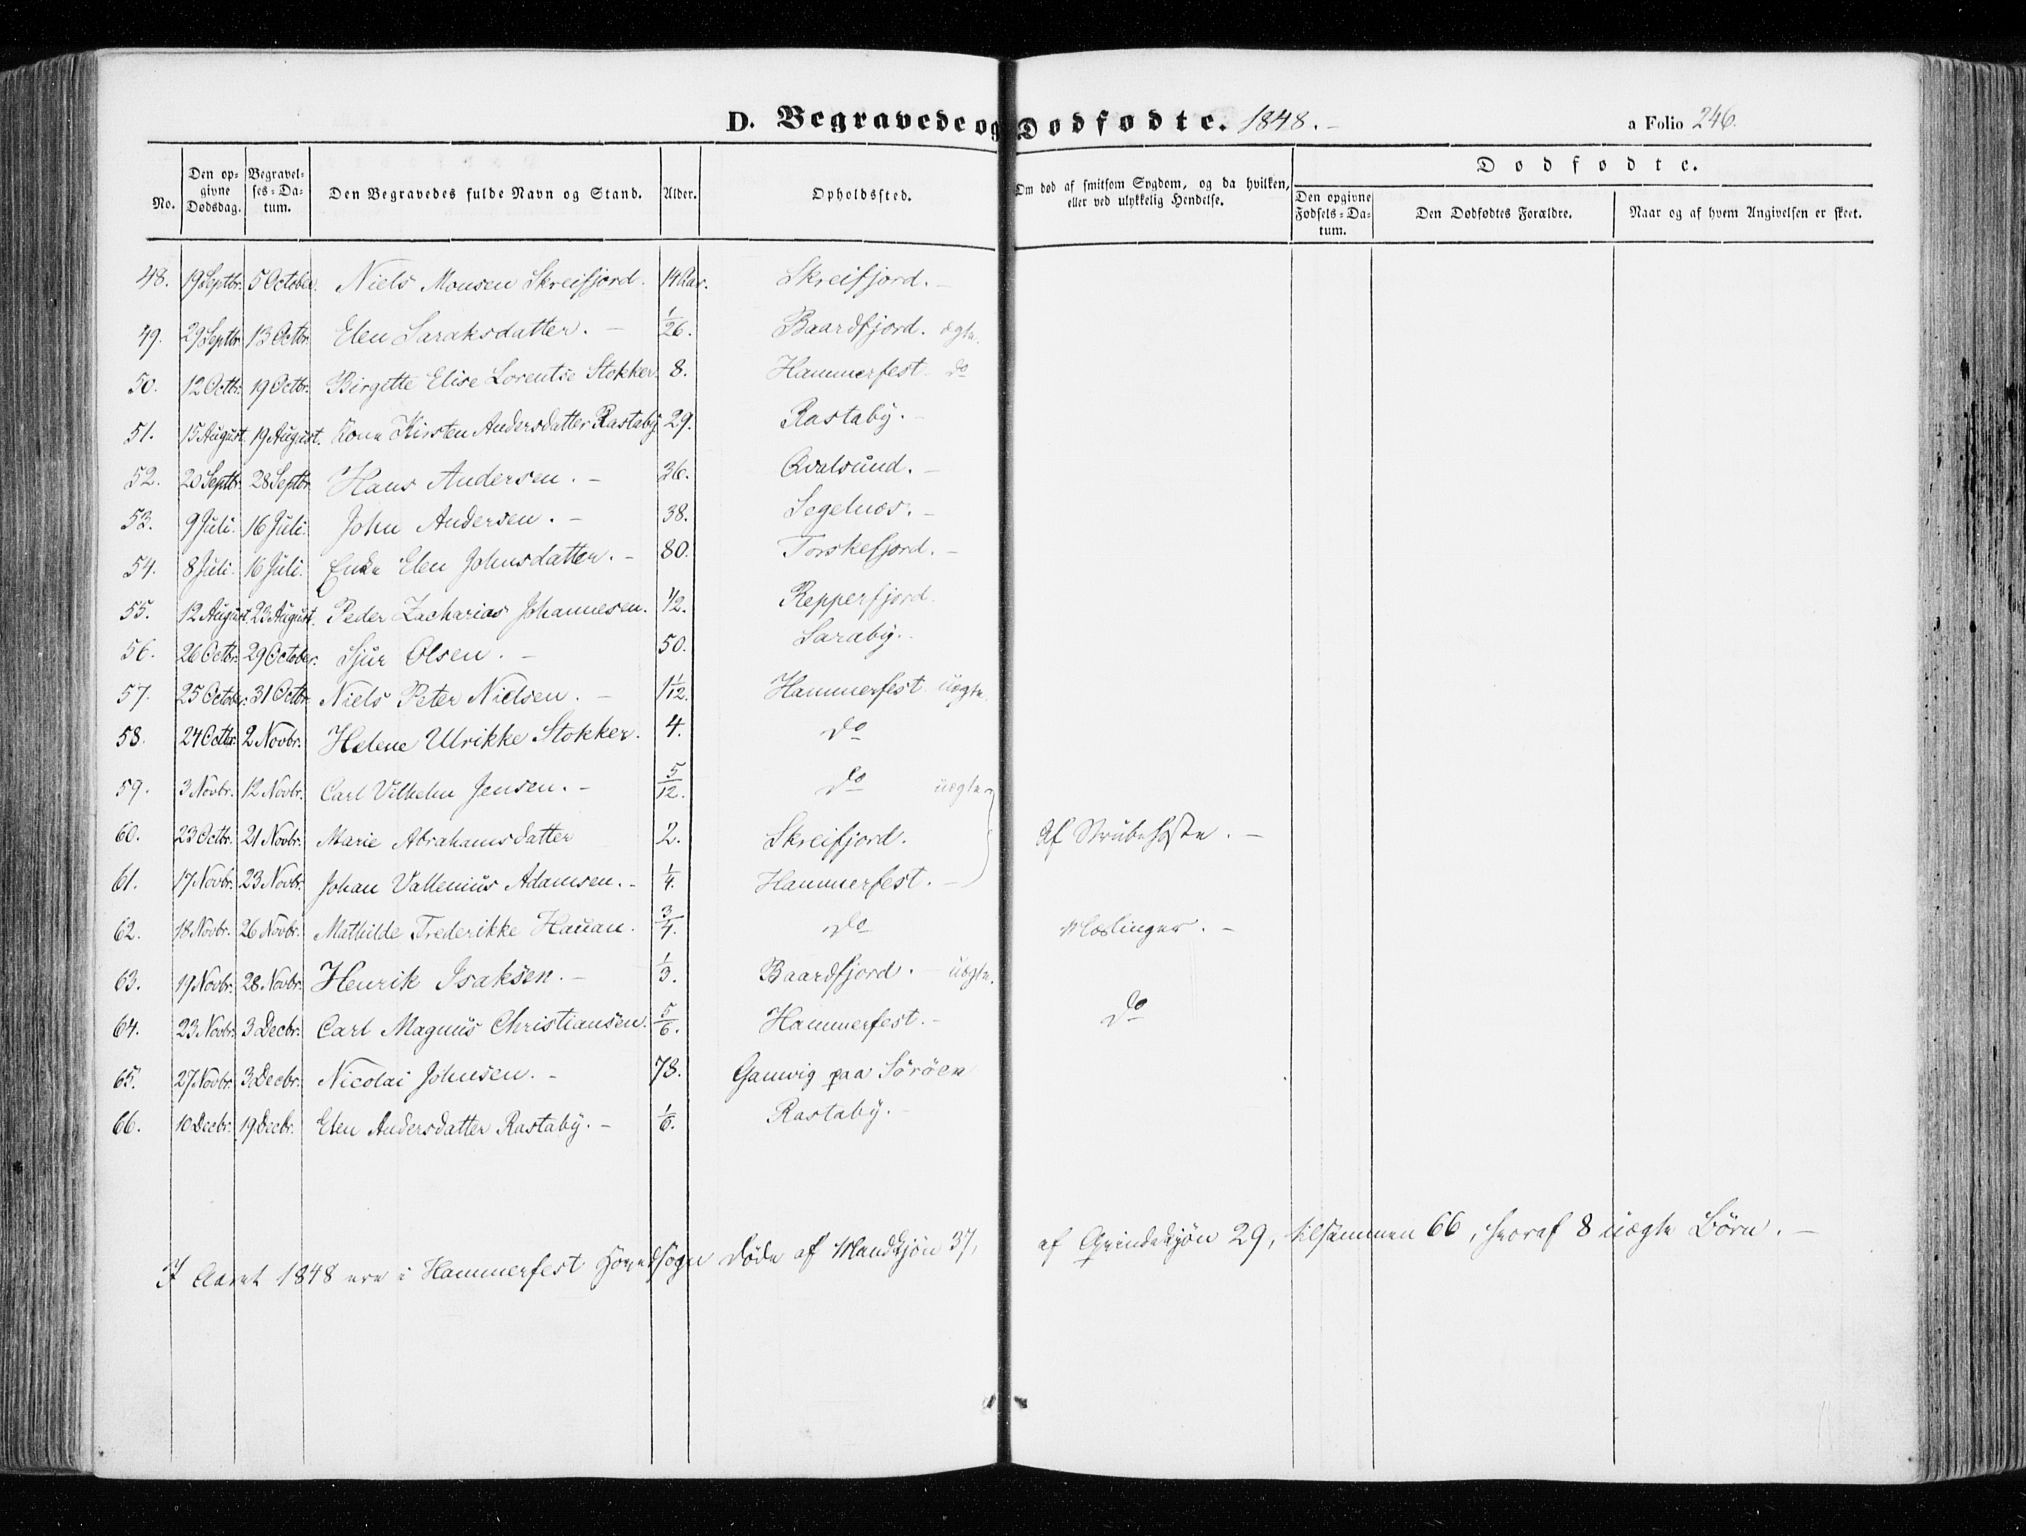 D. Begravede og Dødfødte. 1848.-
a Folio 246.
No. | Den opgivne Dødsdag. | Begravelses-Datum. | Den Begravedes fulde Navn og Stand. | Alder. | Opholdssted. | Om død af smitsom Sygdom, og da hvilken, eller ved ulykkelig Hendelse. | Dødfødte. | Den opgivne Fødsels-Datum. | Den Dødfødtes Forældre. | Naar og af hvem Angivelsen er skeet.
48. 19 Septbr. 5 October. Niels Monsen Skreifjord. 14 Aar. Skreifjord.-
49. 29 Septbr 13 Octbr. Elen Saraksdatter.- 1/26. Baardfjord. ægte.
50. 12 Octbr. 19 Octbr. Birgette Elise Lorentse Stokker. 8. Hammerfest. do
51. 15 August. 19 August. Kone Kirsten Andersdatter Rastaby. 29. Rastaby.-
52. 20 Septbr. 28 Septbr. Hans Andersen.- 36. Qvalsund.-
53. 9 Juli. 16 Juli. John Andersen.- 38. Segelnæs.-
54. 8 Juli. 16 Juli. Enke Elen Johnsdatter.- 80. Torskefjord.-
55. 12 August. 23 August. Peder Zacharias Johannesen. 1/2. Repperfjord.
56. 26 Octbr. 29 October. Sjur Olsen.- 50. Saraby.-
57. 25 October. 31 Octbr. Niels Peter Nielsen.- 1 1/12. Hammerfest uægte.
58. 24 Octbr. 2 Novbr. Helene Ulrikke Stokker. 4. do
59. 3 Novbr. 12 Novbr. Carl Vilhelm Jensen.- 5/12. do uægte
60. 23 Octbr. 21 Novbr. Marie Abrahamsdatter 2. Skreifjord. Af Strubehoste.-
61. 17 Novbr. 23 Novbr. Johan Vallenius Adamsen.- 1/4. Hammerfest.-
62. 18 Novbr. 26 Novbr. Mathilde Frederikke Hauan. 3/4. do Mæslinger.-
63. 19 Novbr. 28 Novbr. Henrik Isaksen.- 1/3. Baardfjord.- uægte.
64. 23 Novbr. 3 Decbr. Carl Magnus Christiansen. 5/6. Hammerfest.- do
65. 27 Novbr. 3 Decbr. Nicolai Johnsen.- 78. Gamvig paa Söröen
66. 10 Decbr. 19 Decbr. Elen Andersdatter Rastaby.- 1/6. Rastaby.-
I Aaret 1848 ere i Hammerfest Hovedsogn døde af Mandkjön 37, af Qvindekjön 29, tilsammen 66, hvoraf 8 uægte Børn.-